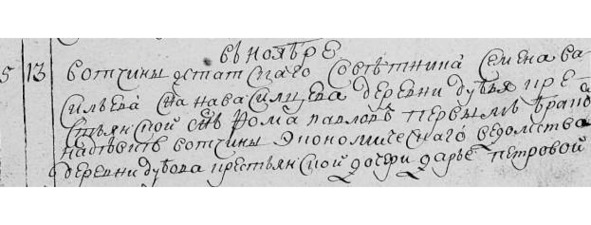 въ ноябре
5 13 вотчины статскаго советника Семена ва
сильева сна наваси деревни дубья кре
стьянской снъ Фома павловъ первымъ бракомъ
надевкѣ вотчины Экономическаго ведомства
деревни дубова крестьянской дочери дарье петровой